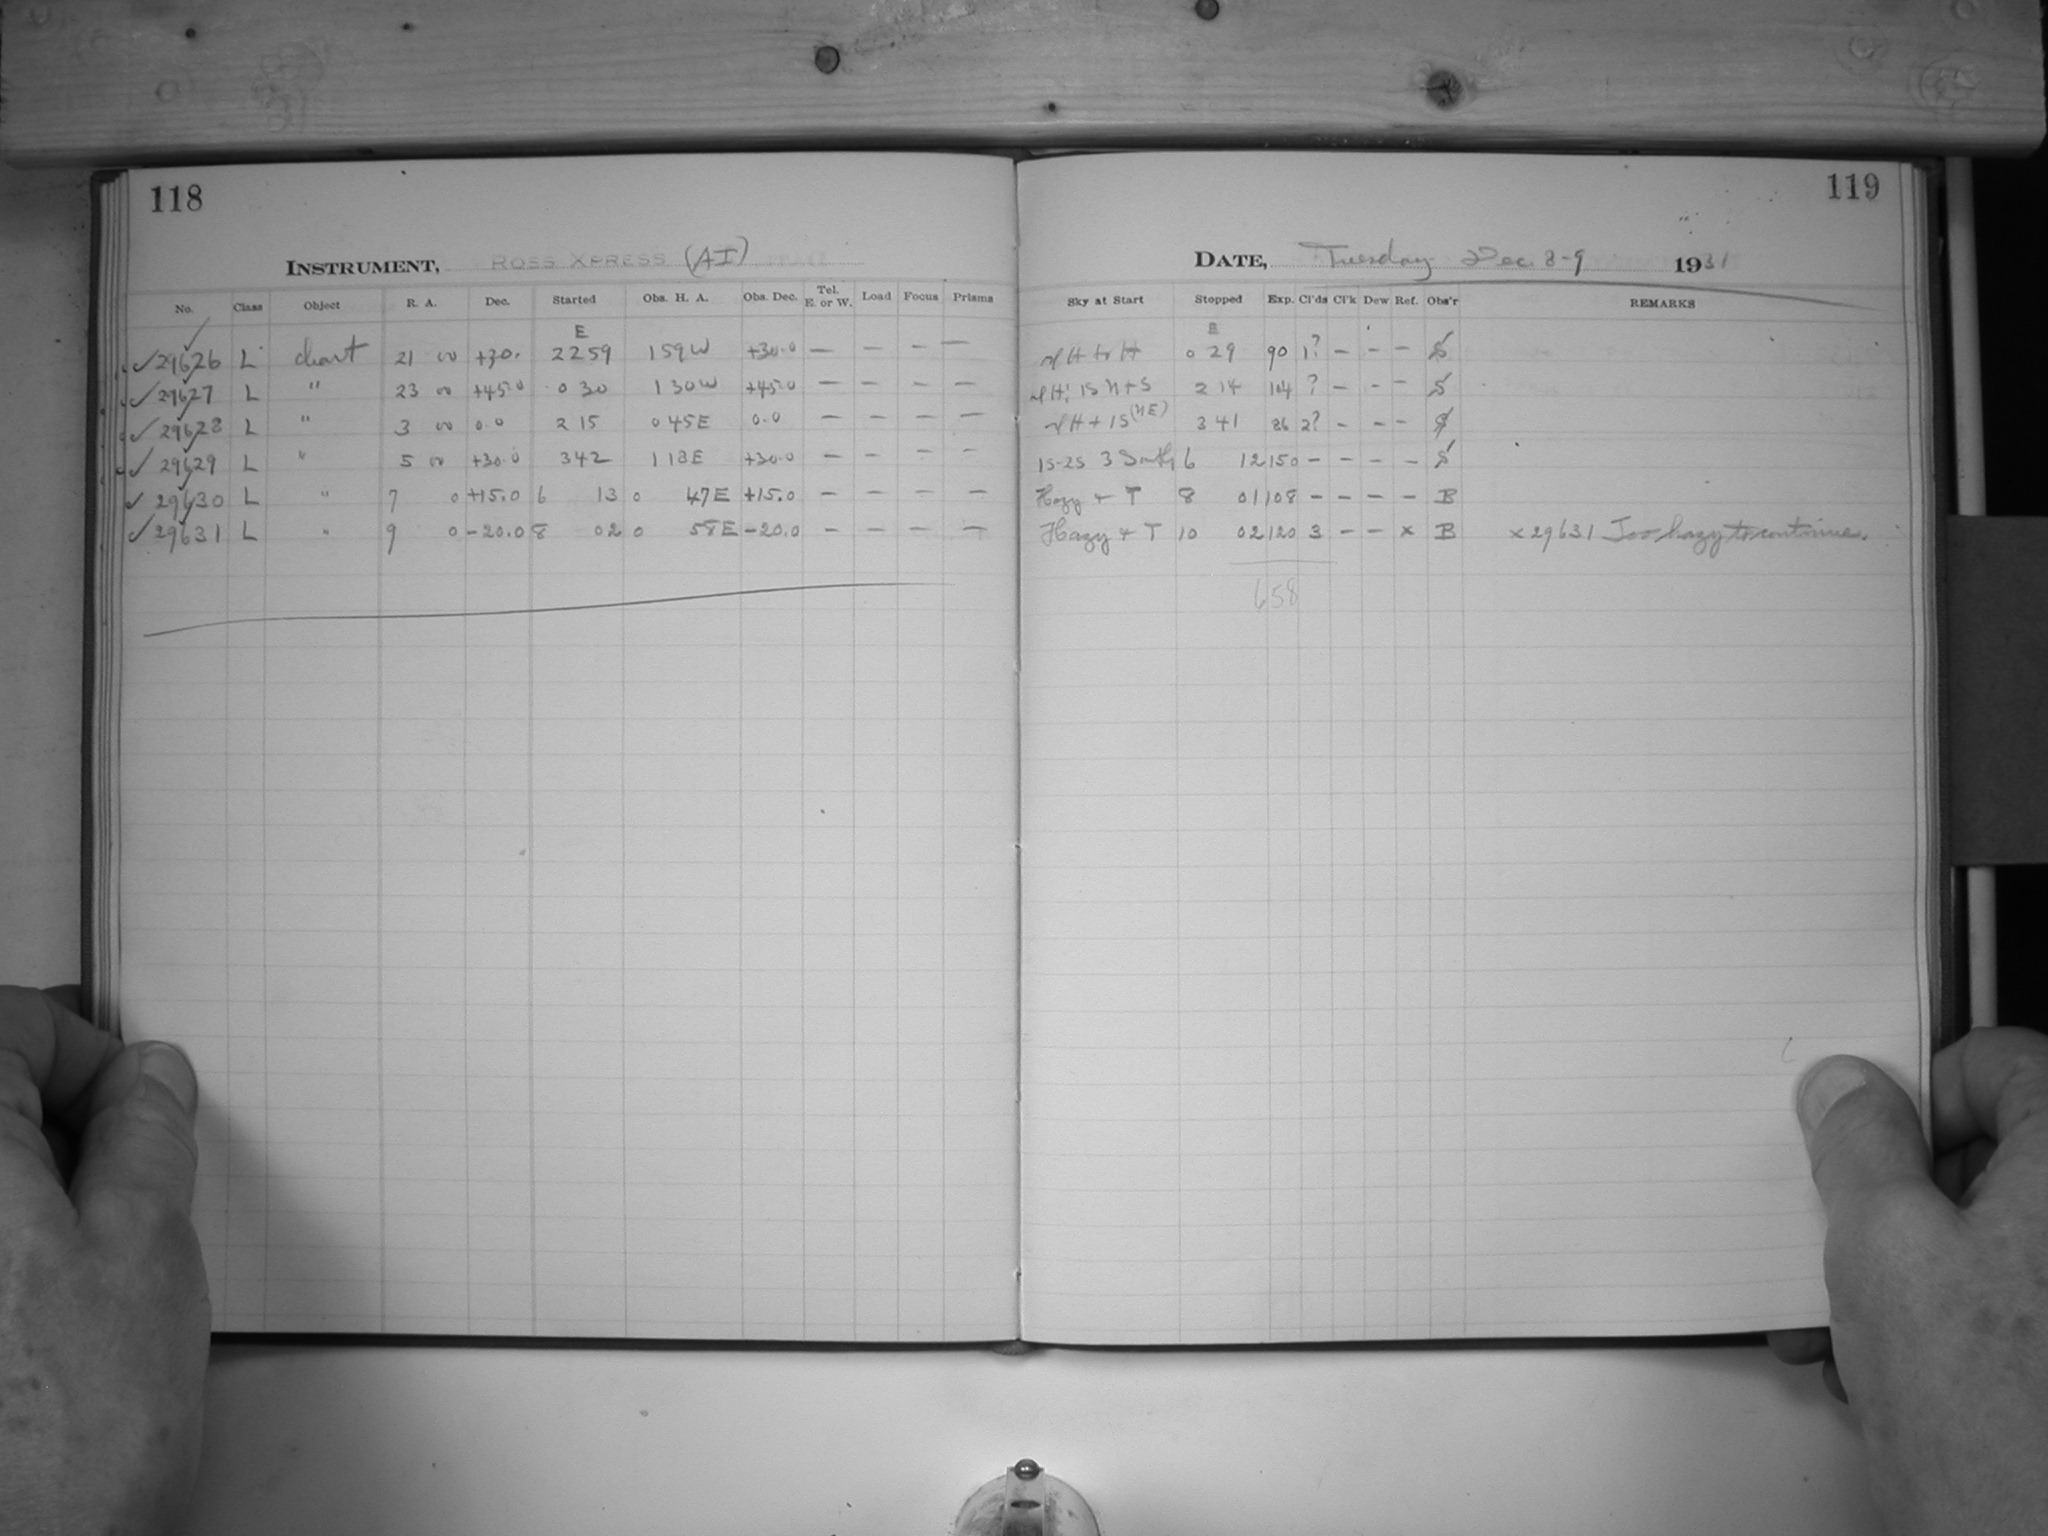 118
INSTRUMENT, ROSS XPRESS (AI)
No. Class Object R. A. Dec. Started Obs. H. A. Obs. Dec. Tel. E. or W. Load Focus Prisms
E
✓29626 L chart 21 00 +30. 22 59 1 59 W +30.0 — — — —
✓29627 L " 23 00 +45.0 0 30 1 30 W +45.0 — — — —
✓29628 L " 3 00 0.0 2 15 0 45 E 0.0 — — — —
✓29629 L " 5 00 +30.0 3 42 1 18 E +30.0 — — — —
✓29630 L " 7 0 +15.0 6 13 0 47 E +15.0 — — — —
✓29631 L " 9 0 -20.0 8 02 0 58 E -20.0 — — — —
119
DATE, Tuesday Dec. 8-9 1931
Sky at Start Stopped Exp. Cl'ds Cl'k Dew Ref. Obs'r REMARKS
E
H to H 0 29 90 1? — — — S
H; 1S N+S 2 14 104 ? — — — S
H + 1S (NE) 3 41 86 2? — — — S
1S-2S 3 South 6 12 150 — — — — S
Hazy + T 8 01 108 — — — — B
Hazy + T 10 02 120 3 — — x B x 29631 Too hazy to continue.
658